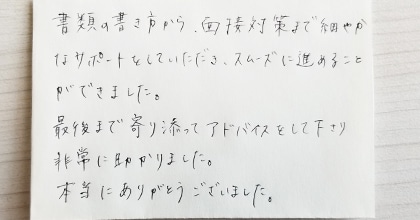 書類の書き方から、面接対策まで細やか
なサポートをしていただき、スムーズに進めること
ができました。
最後まで寄り添ってアドバイスをして下さり
非常に助かりました。
本当にありがとうございました。